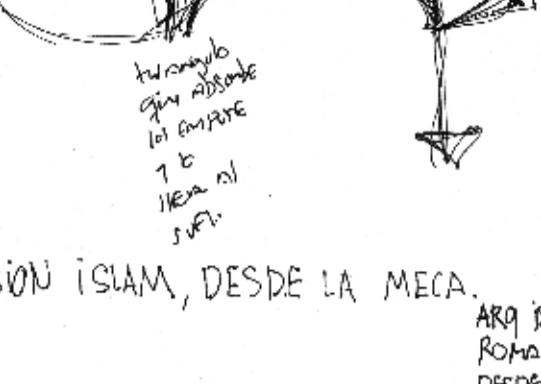 triangulo
que ABSORBE
los EMPUJE
y lo
lleva al
suelo
SION iSLAM, DESDE LA MECA.
ARQ
ROMA
DESDE